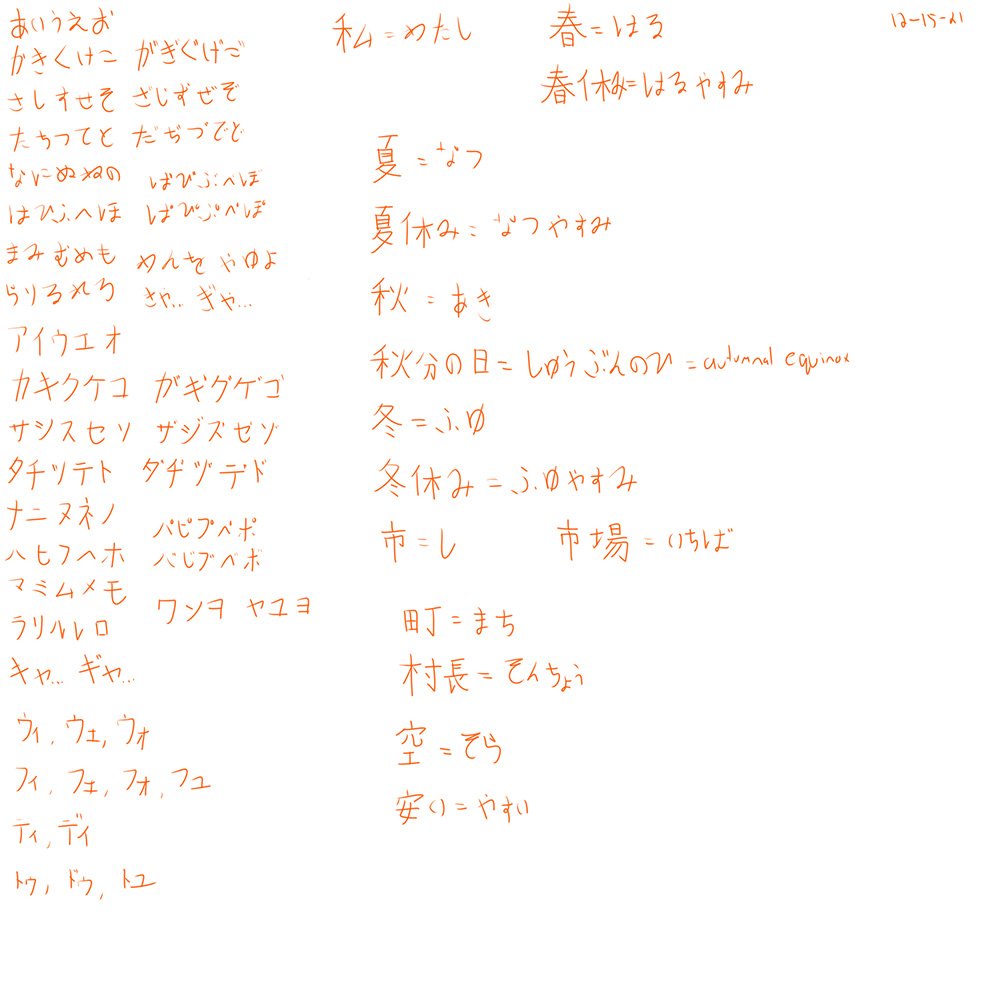 あいうえお
かきくけこ がぎぐげご
さしすせそ ざじずぜぞ
たちつてと だぢづでど
なにぬぬの ばびぶべぼ
はひふへほ ぱぴぷぺぽ
まみむめも めんを やゆよ
らりるれろ きゃ... ぎゃ...
アイウエオ
カキクケコ ガギグゲゴ
サシスセソ ザジズゼゾ
タチツテト ダヂヅデド
ナニヌネノ パピプペポ
ハヒフヘホ バビブベボ
マミムメモ
ワンヲ ヤユヨ
ラリルレロ
キャ... ギャ...
ウィ, ウェ, ウォ
フィ, フェ, フォ, フュ
ティ, ディ
トゥ, ドゥ, トュ
私=めたし
春=はる
12-15-21
春休み=はるやすみ
夏=なつ
夏休み=なつやすみ
秋=あき
秋分の日=しゅうぶんのひ=autumnal equinox
冬=ふゆ
冬休み=ふゆやすみ
市=し
市場=いちば
町=まち
村長=そんちょう
空=そら
安い=やすい